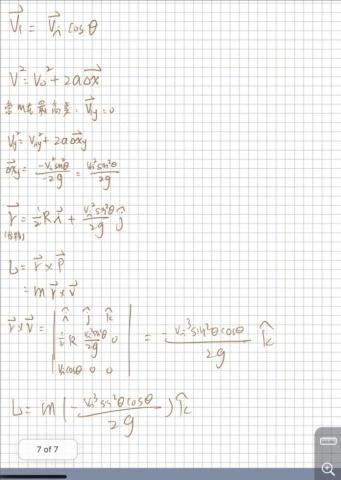 V₁⃗ = Vᵢ⃗ cosθ
V² = V₀² + 2aΔx⃗
當m在最高點. V⃗y = 0
Vy² = Viy² + 2aΔxy
Δxy = -Vᵢ²sin²θ / -2g = Vᵢ²sin²θ / 2g
r⃗ = ½R î + Vᵢ²sin²θ / 2g ĵ
L = r⃗ × P⃗
= m r⃗ × v⃗
r⃗ × v⃗ = | î ĵ k̂ | ½R Vᵢ²sin²θ/2g 0 | Vᵢcosθ 0 0 | = -Vᵢ³sin²θcosθ / 2g k̂
L = m ( -Vᵢ³sin²θcosθ / 2g ) k̂
7 of 7